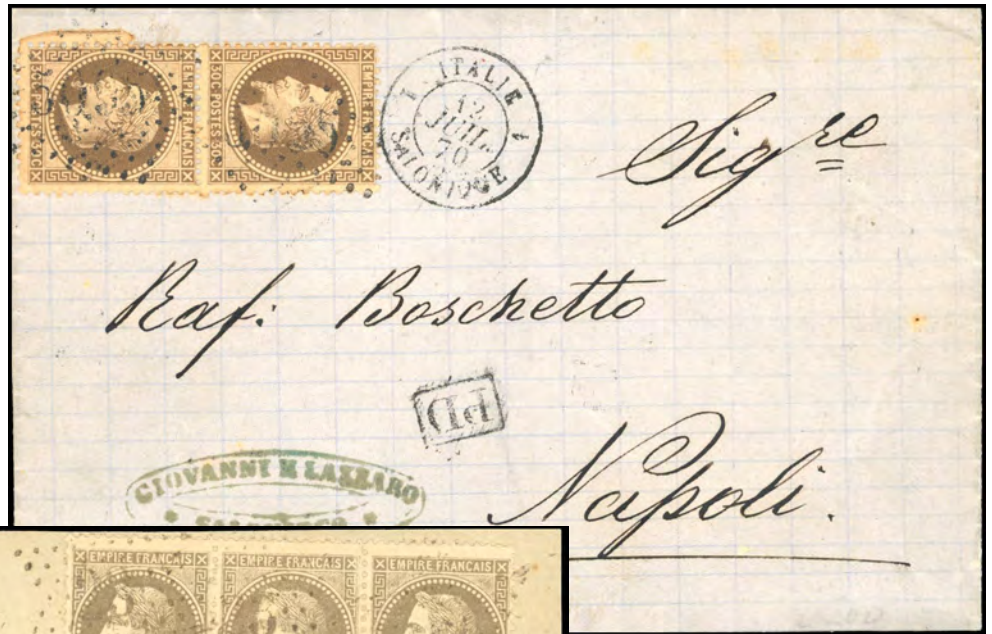 EMPIRE FRANÇAIS
30C. POSTES 30C
EMPIRE FRANÇAIS
30C. POSTES 30C
ITALIE
12
JUIL.
70
SALONIQUE
Sigre
Raf: Boschetto
PD
Napoli.
GIOVANNI M LAZZARO
EMPIRE FRANÇAIS
EMPIRE FRANÇAIS
EMPIRE FRANÇAIS